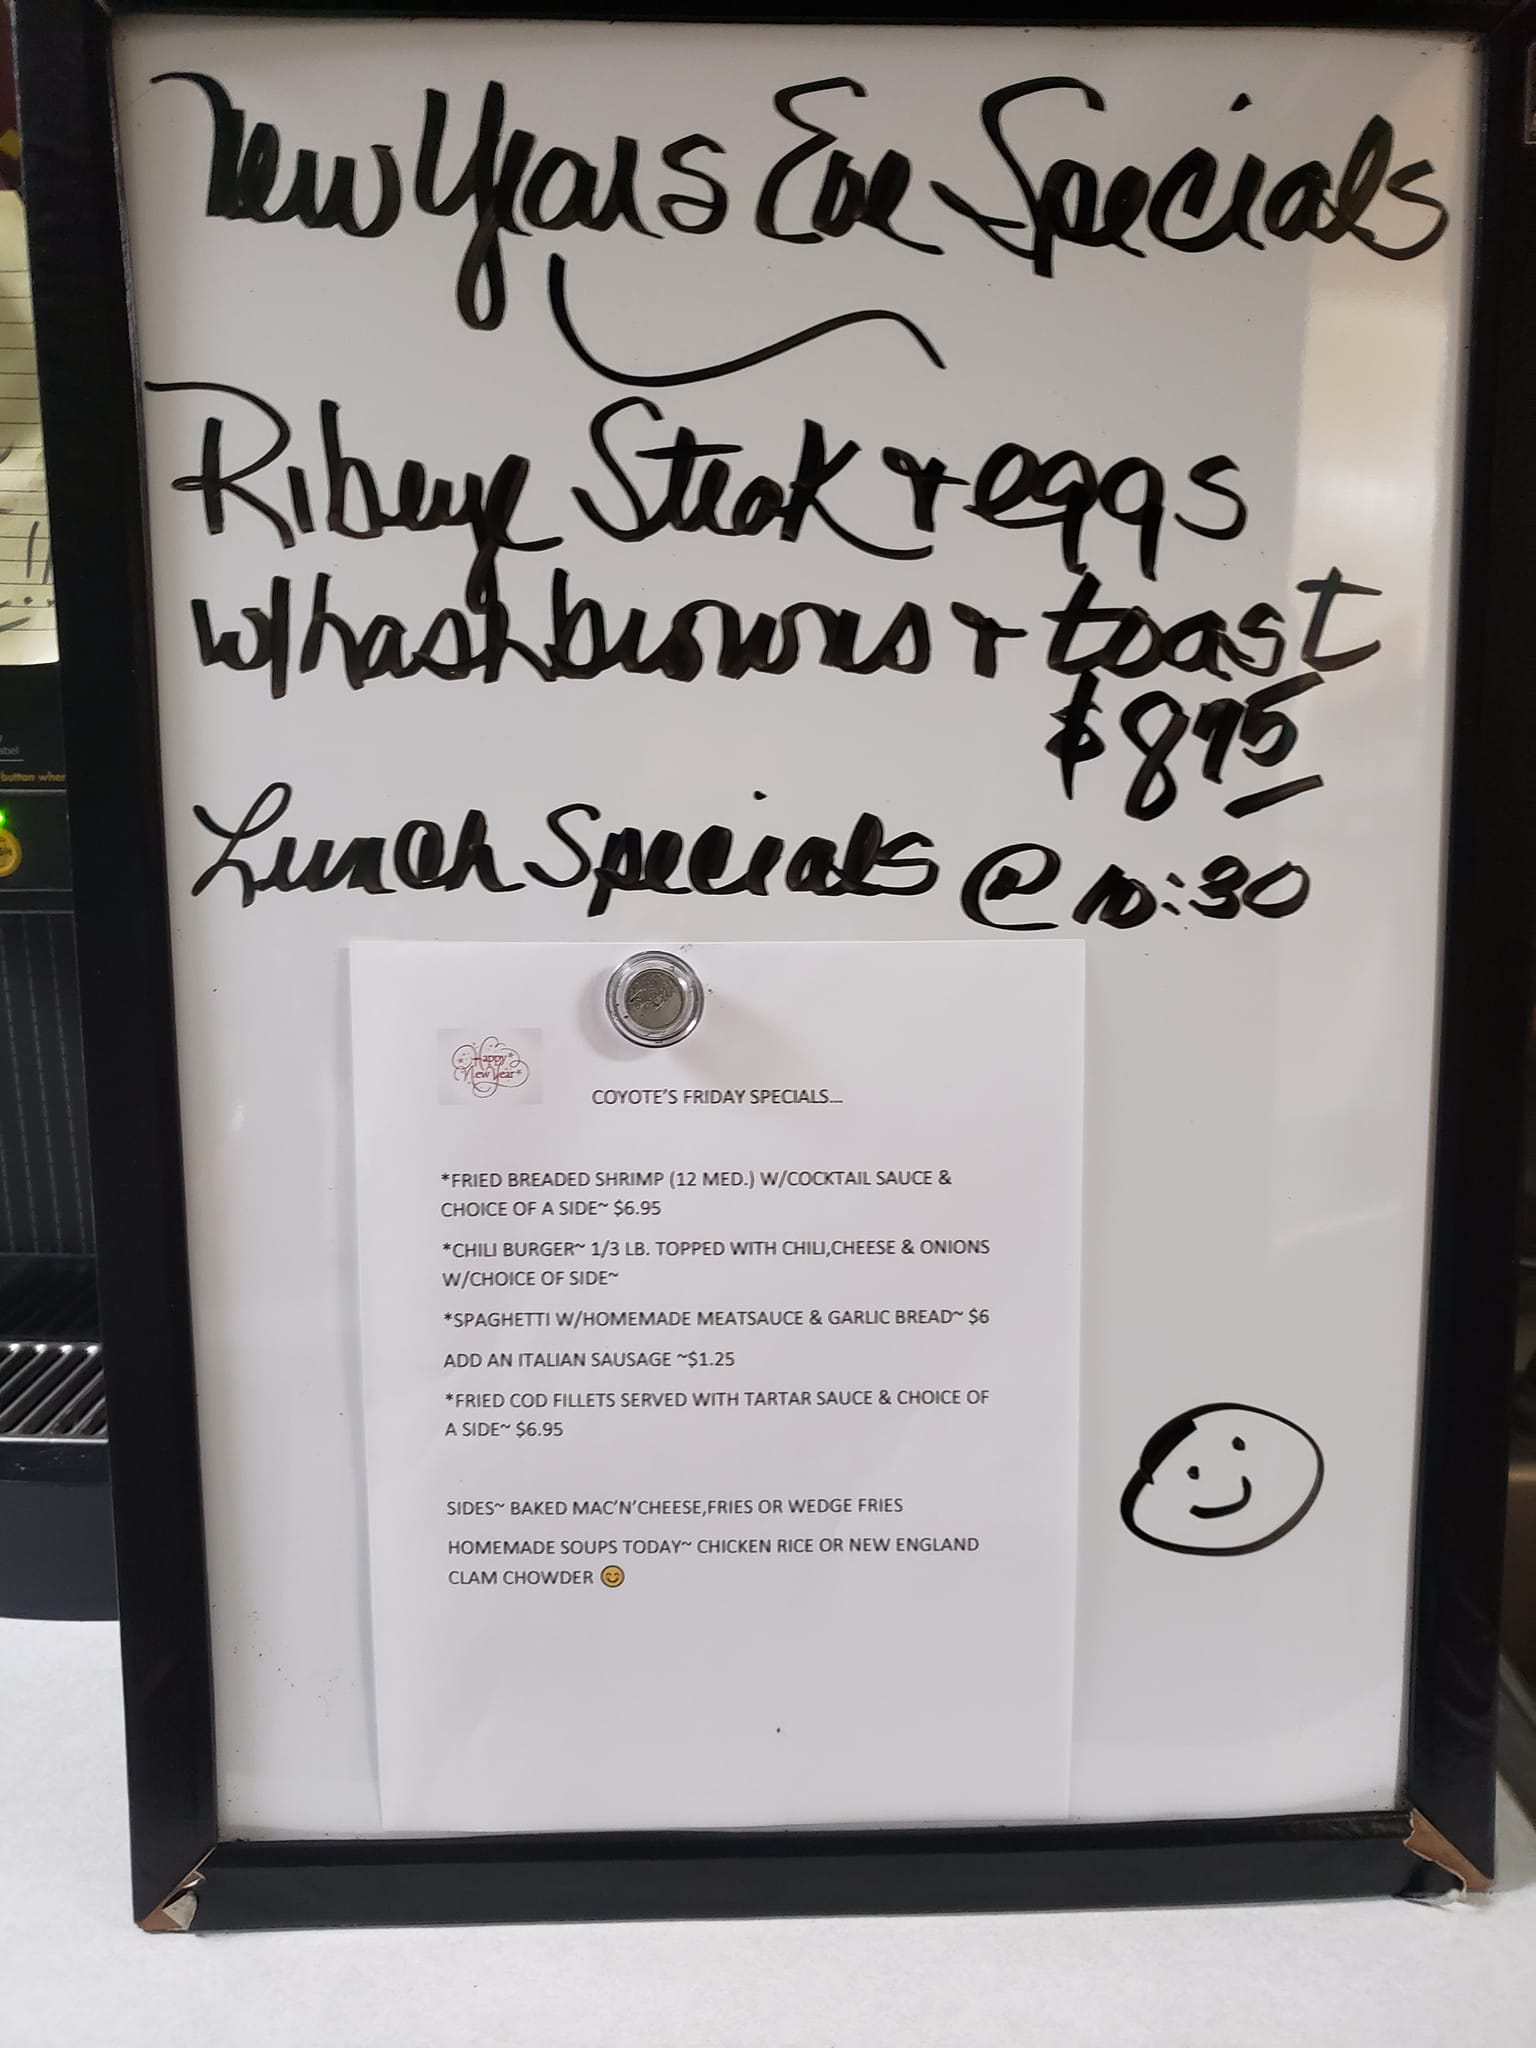 New Years Eve Specials
Ribeye Steak + eggs
w/hashbrowns + toast
$8.95
Lunch Specials @ 10:30
Happy
New Year
COYOTE'S FRIDAY SPECIALS...
*FRIED BREADED SHRIMP (12 MED.) W/COCKTAIL SAUCE &
CHOICE OF A SIDE~ $6.95
*CHILI BURGER~ 1/3 LB. TOPPED WITH CHILI,CHEESE & ONIONS
W/CHOICE OF SIDE~
*SPAGHETTI W/HOMEMADE MEATSAUCE & GARLIC BREAD~ $6
ADD AN ITALIAN SAUSAGE ~$1.25
*FRIED COD FILLETS SERVED WITH TARTAR SAUCE & CHOICE OF
A SIDE~ $6.95
SIDES~ BAKED MAC'N'CHEESE,FRIES OR WEDGE FRIES
HOMEMADE SOUPS TODAY~ CHICKEN RICE OR NEW ENGLAND
CLAM CHOWDER 😊